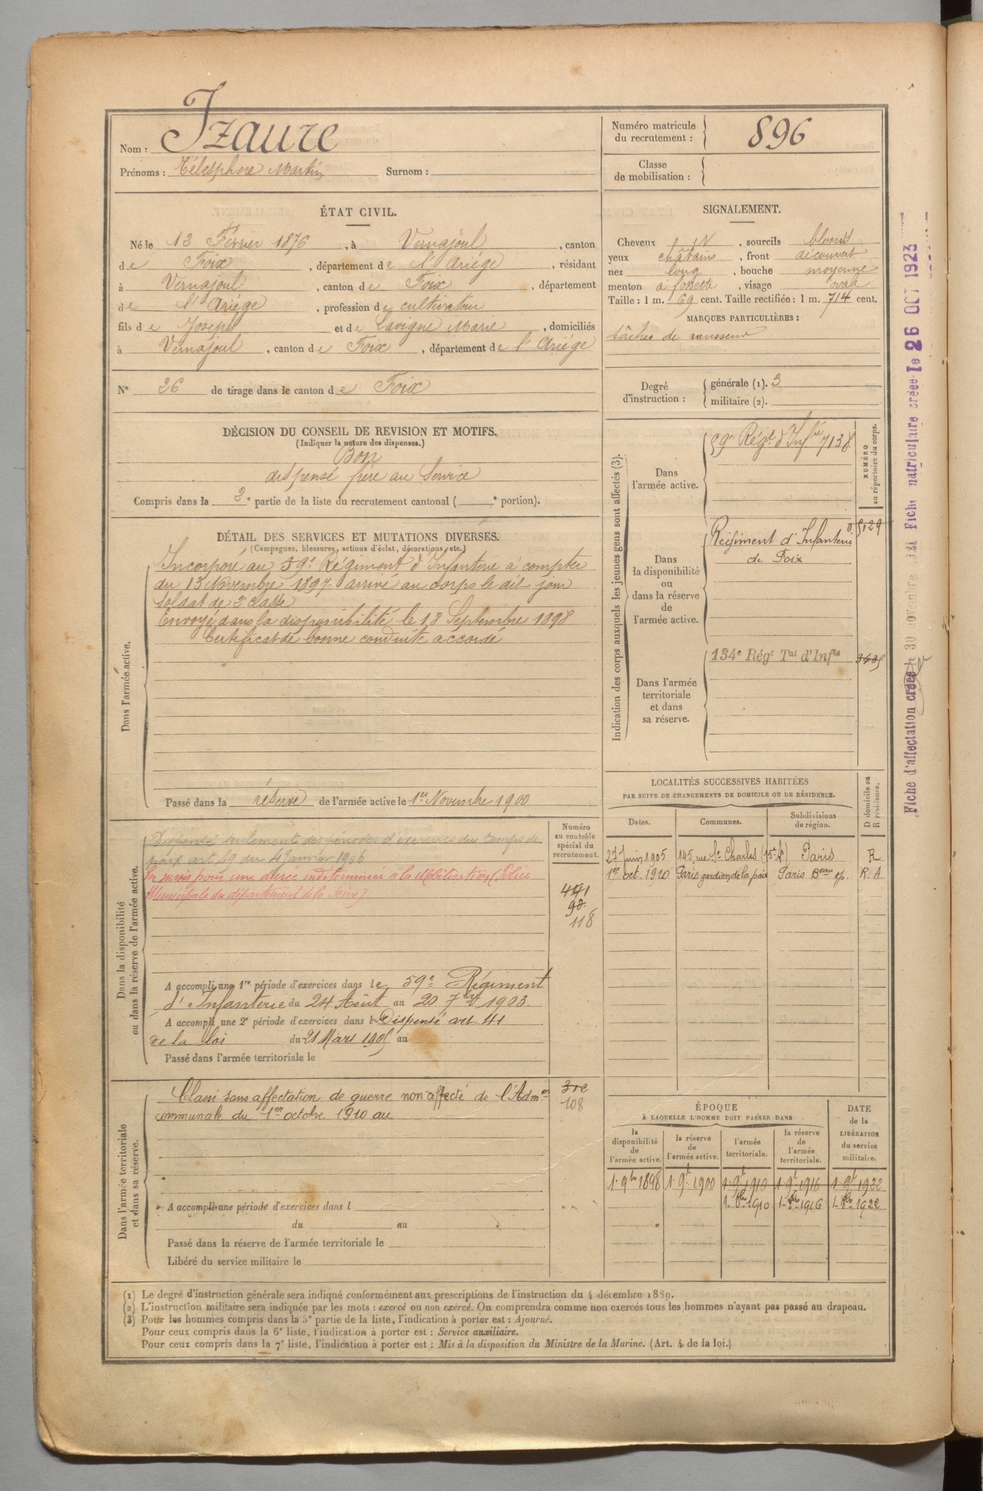 Nom : Izaure
Prénoms : Télesphore Martin Surnom :
Numéro matricule du recrutement : 896
Classe de mobilisation :
ÉTAT CIVIL.
Né le 13 Février 1876, à Vernajoul, canton
de Foix, département de l'Ariège, résidant
à Vernajoul, canton de Foix, département
de l'Ariège, profession de cultivateur
fils de Joseph et de Lavigne Marie, domiciliés
à Vernajoul, canton de Foix, département de l'Ariège
N° 26 de tirage dans le canton de Foix
SIGNALEMENT.
Cheveux, sourcils blonds
yeux châtains, front découvert
nez long, bouche moyenne
menton à fossette, visage ovale
Taille : 1 m. 69 cent. Taille rectifiée : 1 m. 714 cent.
MARQUES PARTICULIÈRES :
tâches de rousseur
Degré d'instruction : générale (1). 3
militaire (2).
DÉCISION DU CONSEIL DE REVISION ET MOTIFS.
(Indiquer la nature des dispenses.)
Bon
dispensé frère au Service
Compris dans la 2e partie de la liste du recrutement cantonal ( e portion).
DÉTAIL DES SERVICES ET MUTATIONS DIVERSES.
(Campagnes, blessures, actions d'éclat, décorations, etc.)
Dans l'armée active.
Incorporé au 59e Régiment d'Infanterie à compter
du 13 Novembre 1897 arrivé au corps le dit jour
soldat de 2e classe
Envoyé dans la disponibilité le 18 Septembre 1898
Certificat de bonne conduite accordé
Passé dans la réserve de l'armée active le 1er Novembre 1900
Indication des corps auxquels les jeunes gens sont affectés (3).
NUMÉRO au répertoire du corps.
Dans l'armée active.
59e Régt d'Infrie 7138
Dans la disponibilité ou dans la réserve de l'armée active.
Régiment d'Infanterie
de Foix
Dans l'armée territoriale et dans sa réserve.
134e Régt Tal d'Infie
LOCALITÉS SUCCESSIVES HABITÉES
PAR SUITE DE CHANGEMENTS DE DOMICILE OU DE RÉSIDENCE.
D domicile ou R résidence.
Dates. Communes. Subdivisions de région.
27 juin 1905 145, rue St Charles (15e A) Paris R
1er oct. 1910 Paris gardien de la paix Paris R. A
Dans la disponibilité ou dans la réserve de l'armée active.
Numéro au contrôle spécial du recrutement.
Dispensé seulement des périodes d'exercices du temps de
paix art 49 du
En sursis pour une durée indéterminée à la Mobilisation (Police
Municipale du département de la Seine)
98
118
A accompli une 1re période d'exercices dans le 59e Régiment
d'Infanterie du 24 Août au 20 7bre 1903
A accompli une 2e période d'exercices dans l Dispensé art 41
de la Loi du 21 Mars 1905 au
Passé dans l'armée territoriale le
Dans l'armée territoriale et dans sa réserve.
Classé sans affectation de guerre non affecté de l'Admon
communale du 1er octobre 1910 au
312
108
A accompli une période d'exercices dans l
du au
Passé dans la réserve de l'armée territoriale le
Libéré du service militaire le
ÉPOQUE
À LAQUELLE L'HOMME DOIT PASSER DANS
DATE de la LIBÉRATION du service militaire.
la disponibilité de l'armée active. la réserve de l'armée active. l'armée territoriale. la réserve de l'armée territoriale.
1. 9bre 1898 1. 9bre 1900 1. 9bre 1910 1. 9bre 1916 1. 9bre 1922
1. 8bre 1910 1. 8bre 1916 1. 8bre 1922
(1) Le degré d'instruction générale sera indiqué conformément aux prescriptions de l'instruction du 4 décembre 1889.
(2) L'instruction militaire sera indiquée par les mots : exercé ou non exercé. On comprendra comme non exercés tous les hommes n'ayant pas passé au drapeau.
(3) Pour les hommes compris dans la 5e partie de la liste, l'indication à porter est : Ajourné.
Pour ceux compris dans la 6e liste, l'indication à porter est : Service auxiliaire.
Pour ceux compris dans la 7e liste, l'indication à porter est : Mis à la disposition du Ministre de la Marine. (Art. 4 de la loi.)
Fiche matriculaire créée le 26 OCT 1923
Fiche d'affectation créée